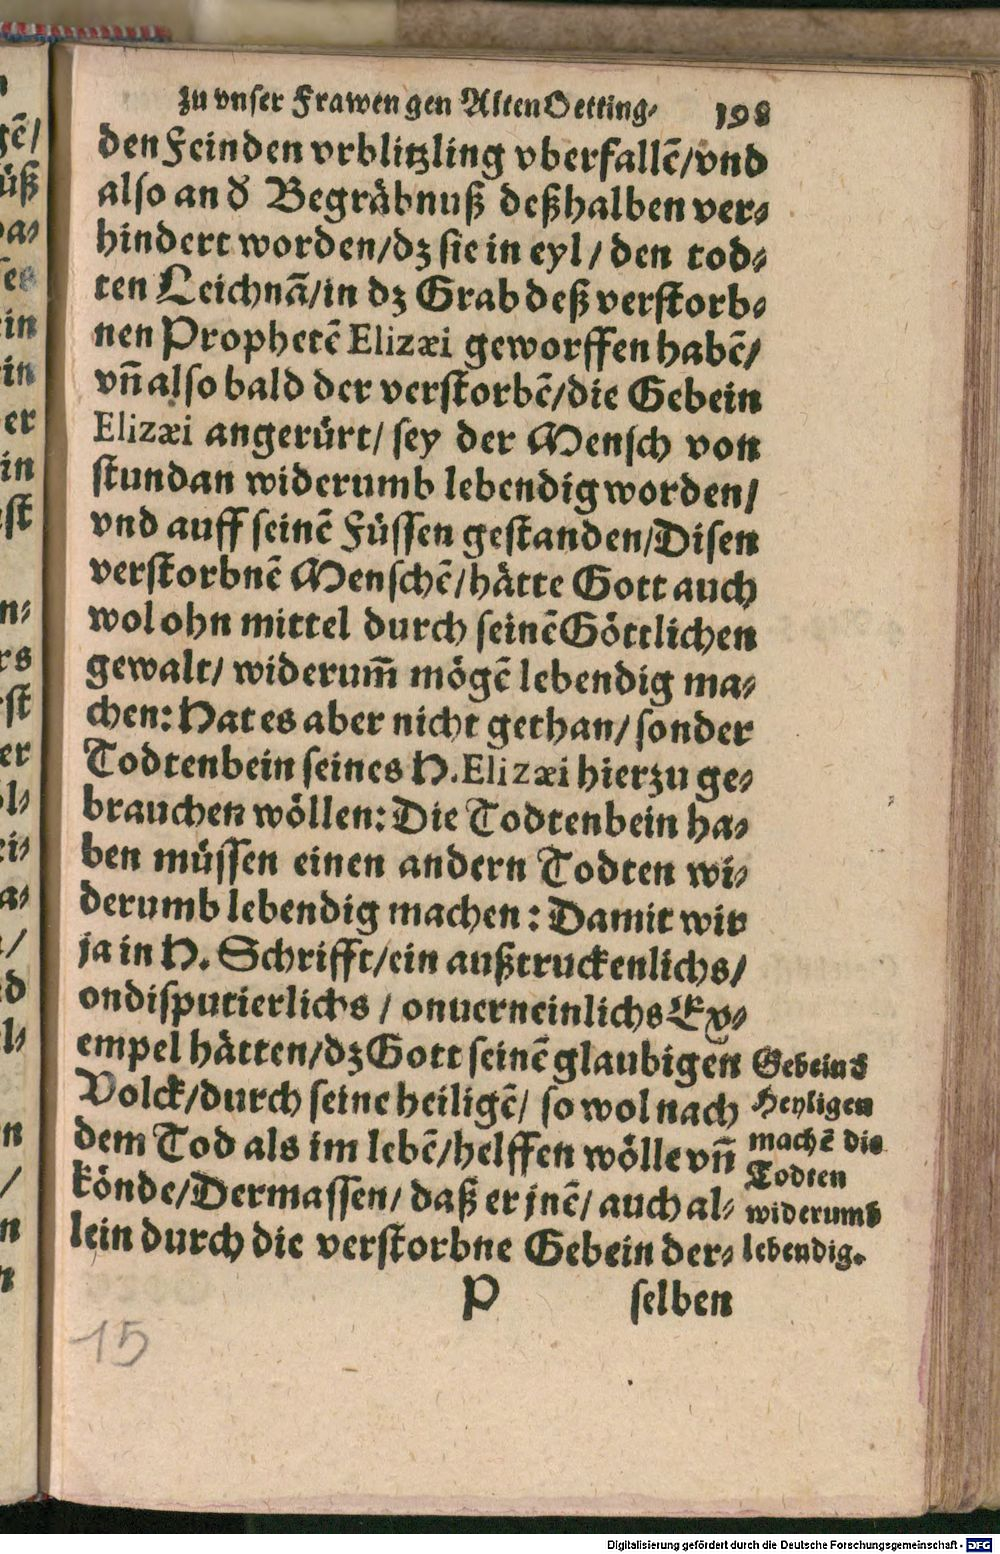 zu vnser Frawen gen Alten Oetting. 198
den Feinden vrblitzling vberfallẽ/vnd
also an d᷑ Begräbnuß deßhalben ver-
hindert worden/dz sie in eyl/den tod-
ten Leichnã/in dz Grab deß verstorb-
nen Prophetẽ Elizæi geworffen habẽ/
vñ also bald der verstorbẽ/die Gebein
Elizæi angerürt/ sey der Mensch von
stundan widerumb lebendig worden/
vnd auff seinẽ Füssen gestanden/Disen
verstorbnẽ Menschẽ/hätte Gott auch
wol ohn mittel durch seinẽ Göttlichen
gewalt/ widerum̃ mögẽ lebendig ma-
chen: Hat es aber nicht gethan/ sonder
Todtenbein seines H. Elizæi hierzu ge-
brauchen wöllen: Die Todtenbein ha-
ben müssen einen andern Todten wi-
derumb lebendig machen: Damit wir
ja in H. Schrifft/ein außtruckenlichs/
ondisputierlichs / onuerneinlichs Ex-
empel hätten/dz Gott seinẽ glaubigen
Volck/durch seine heiligẽ/ so wol nach
dem Tod als im lebẽ/helffen wölle vñ
könde/Dermassen/ daß er jnẽ/ auch al-
lein durch die verstorbne Gebein der-
Gebein d᷑
Heyligen
machẽ die
Todten
widerumb
lebendig.
P selben
15
Digitalisierung gefördert durch die Deutsche Forschungsgemeinschaft - DFG